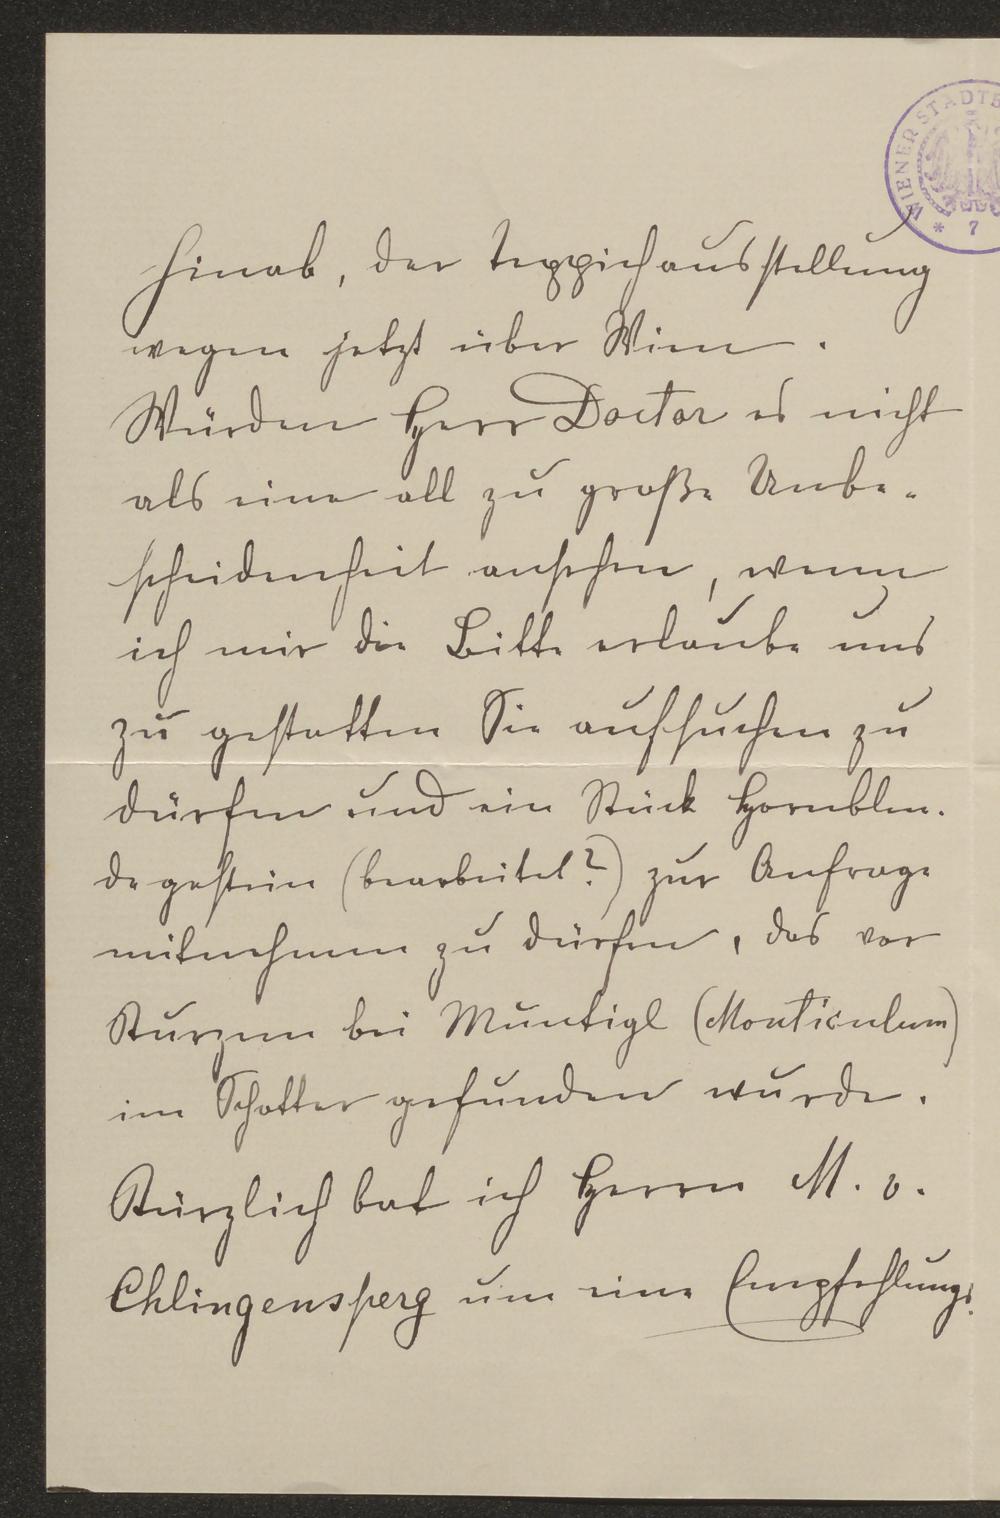 WIENER STADTB
* 7
hinab, der Teppichausstellung
wegen jetzt über Wien.
Würden Herr Doctor es nicht
als eine all zu große Unbe-
scheidenheit ansehen, wenn
ich mir die Bitte erlaube uns
zu gestatten Sie aufsuchen zu
dürfen und ein Stück Hornblen-
degestein (bearbeitet?) zur Anfrage
mitnehmen zu dürfen, das vor
Kurzem bei Muntigl (Monticulum)
im Schotter gefunden wurde.
Kürzlich bat ich Herrn M. v.
Chlingensperg um eine Empfehlungs-